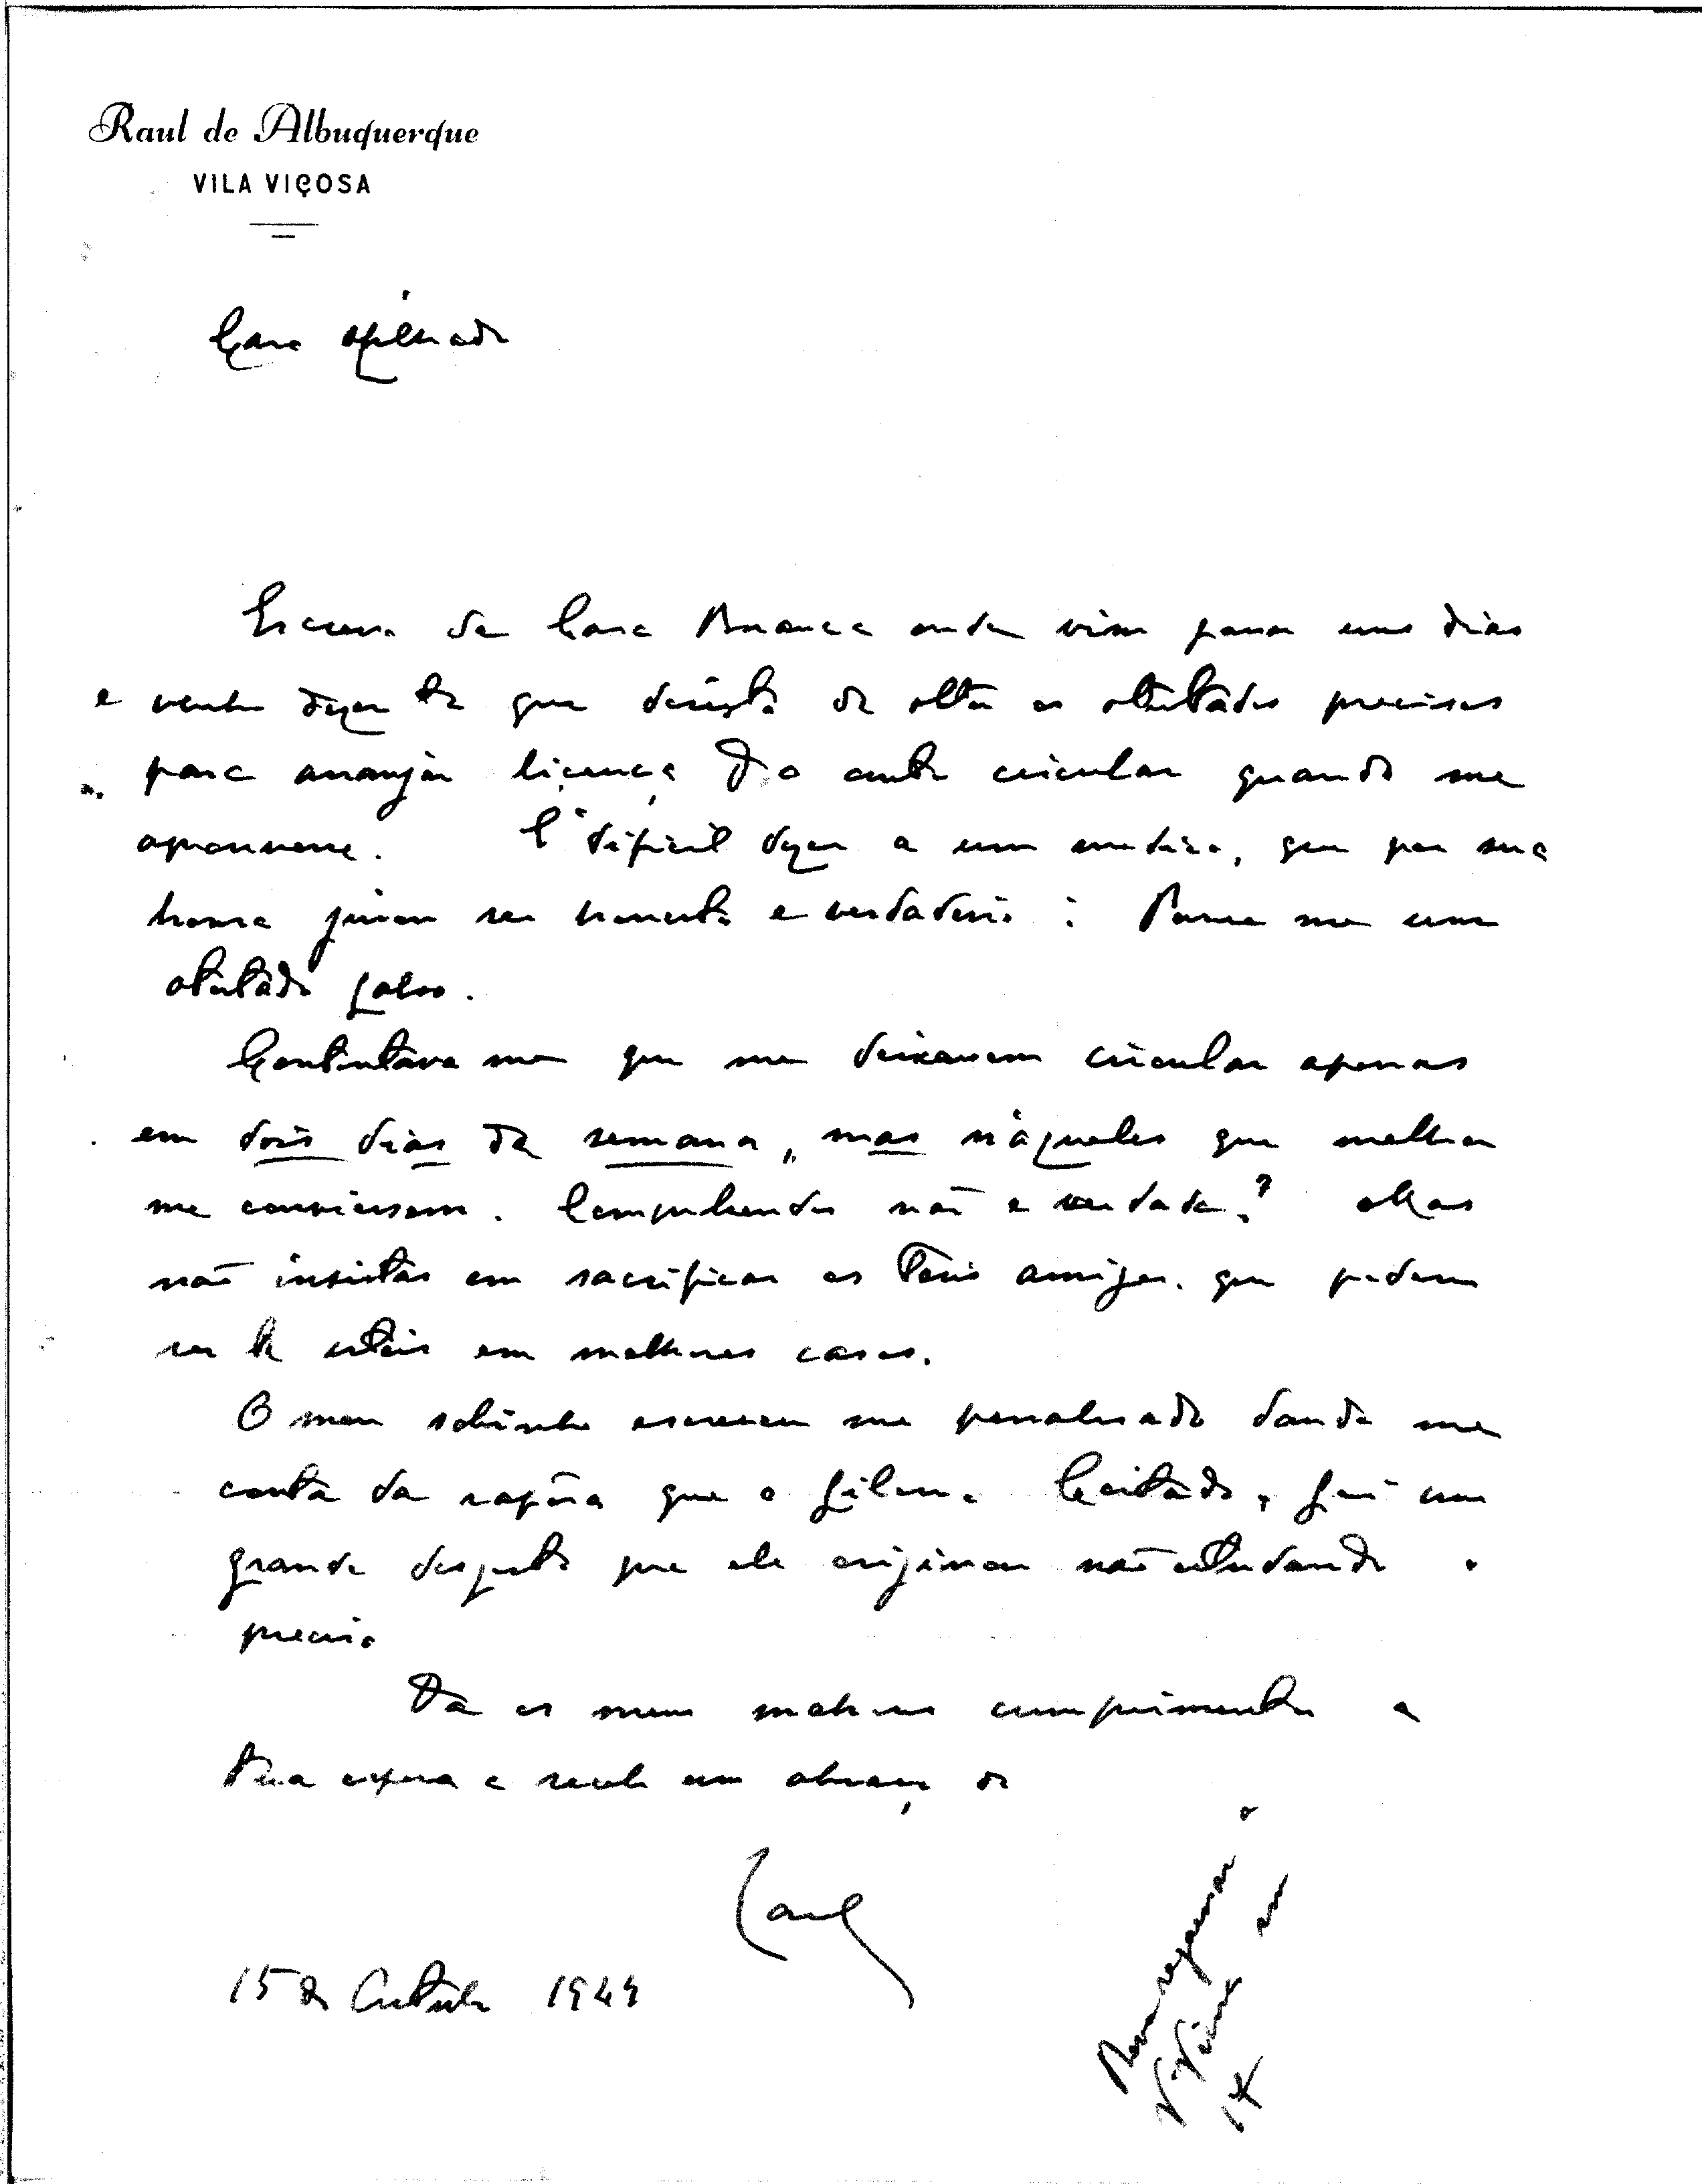 Raul de Albuquerque
VILA VIÇOSA
Caro afilhado
Escrevo da Casa Branca onde vim passar uns dias
e venho dizer te que desisto de obter os atestados precisos
para arranjar licença do auto circular quando me
aprouvesse. É dificil dizer a um medico, que por sua
honra jurou ser honesto e verdadeiro: Passe me um
atestado falso.
Contentava me que me deixassem circular apenas
em dois dias da semana, mas náqueles que melhor
me conviessem. Compreendes não é verdade? Mas
não insistas em sacrificar os teus amigos que podem
ser te uteis em melhores casos.
O meu sobrinho escreveu me penalisado dando me
conta da rapôsa que o filho Coitado, foi um
grande desgosto que ele originou não estudando o
preciso
Dá os meus melhores cumprimentos a
tua esposa e recebe um abraço de
Raul
15 de Outubro 1949
Devo regressar a
V Viçosa em
17